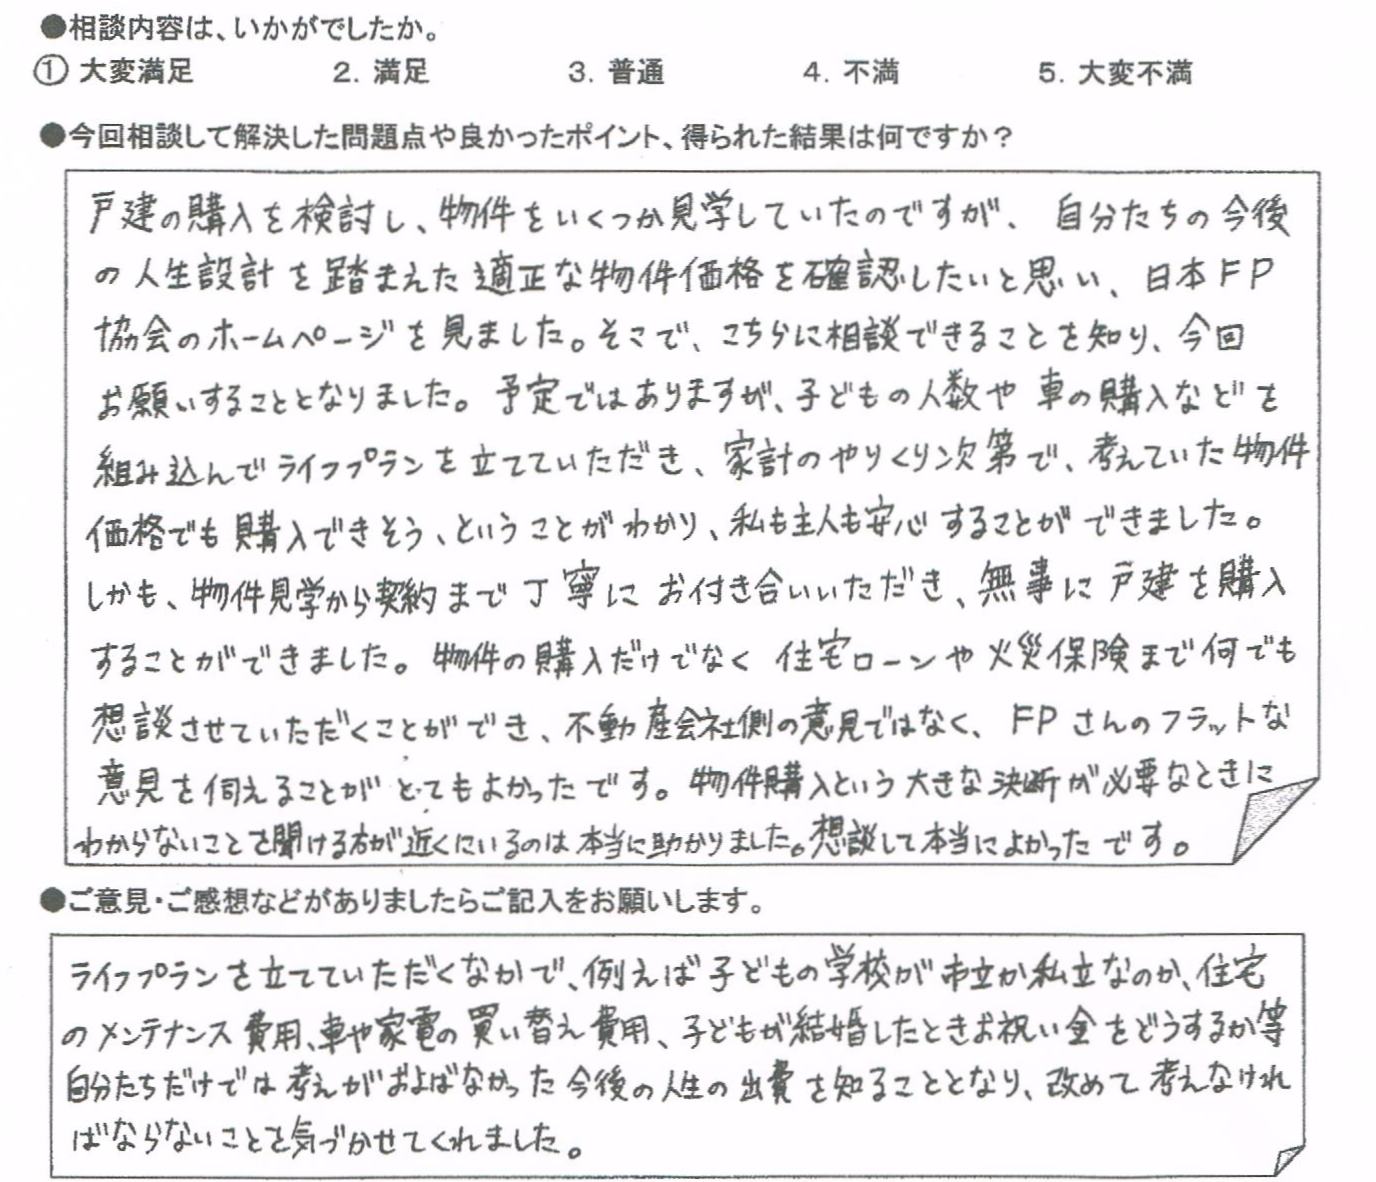 ●相談内容は、いかがでしたか。
① 大変満足 2. 満足 3. 普通 4. 不満 5. 大変不満
●今回相談して解決した問題点や良かったポイント、得られた結果は何ですか？
戸建の購入を検討し、物件をいくつか見学していたのですが、自分たちの今後
の人生設計を踏まえた適正な物件価格を確認したいと思い、日本FP
協会のホームページを見ました。そこで、こちらに相談できることを知り、今回
お願いすることとなりました。予定ではありますが、子どもの人数や車の購入などを
組み込んでライフプランを立てていただき、家計のやりくり次第で、考えていた物件
価格でも購入できそう、ということがわかり、私も主人も安心することができました。
しかも、物件見学から契約まで丁寧にお付き合いいただき、無事に戸建を購入
することができました。物件の購入だけでなく住宅ローンや火災保険まで何でも
想談させていただくことができ、不動産会社側の意見ではなく、FPさんのフラットな
意見を伺えることがとてもよかったです。物件購入という大きな決断が必要なときに
わからないことを聞ける方が近くにいるのは本当に助かりました。想談して本当によかったです。
●ご意見・ご感想などがありましたらご記入をお願いします。
ライフプランを立てていただくなかで、例えば子どもの学校が市立か私立なのか、住宅
のメンテナンス費用、車や家電の買い替え費用、子どもが結婚したときお祝い金をどうするか等
自分たちだけでは考えがおよばなかった今後の人生の出費を知ることとなり、改めて考えなけれ
ばならないことを気づかせてくれました。